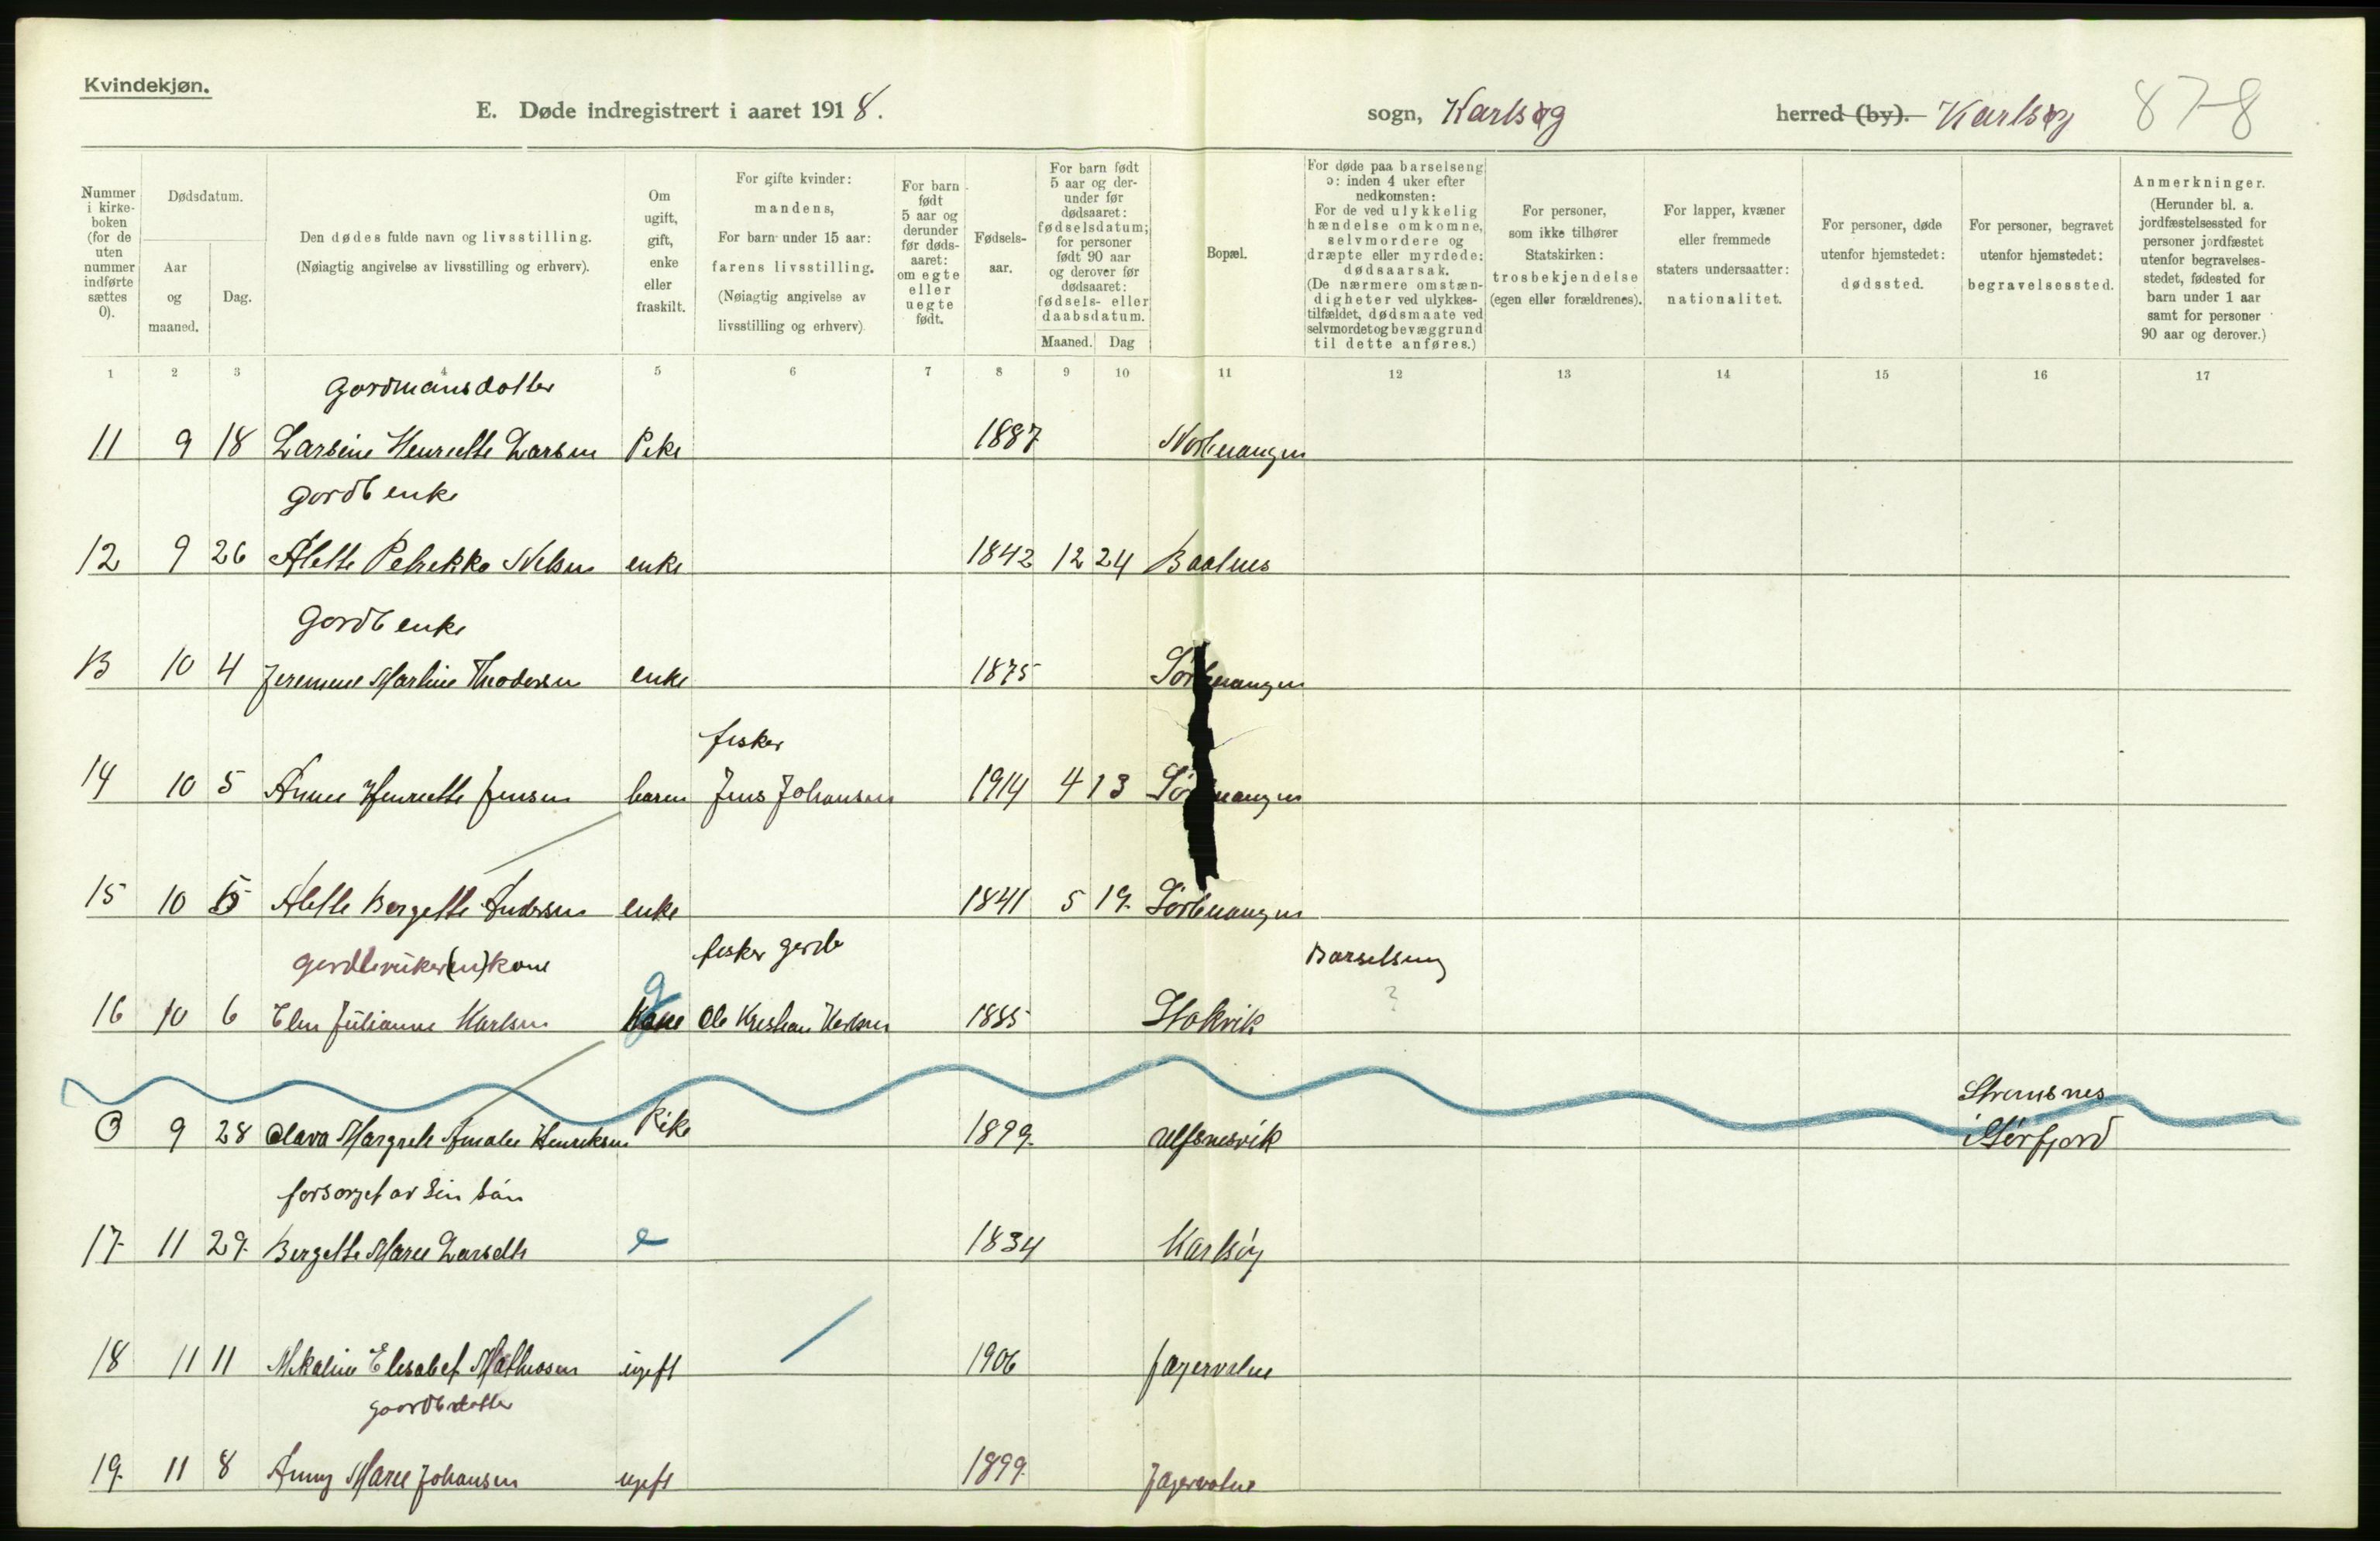 Kvindekjøn.
E. Døde indregistrert i aaret 1918.
sogn, Karlsøy
herred (by). Karlsøy
87-8
Nummer i kirkeboken (for de uten nummer indførte sættes 0).
Dødsdatum.
Aar og maaned.
Dag.
Den dødes fulde navn og livsstilling.
(Nøiagtig angivelse av livsstilling og erhverv).
Om ugift, gift, enke eller fraskilt.
For gifte kvinder: mandens,
For barn under 15 aar: farens livsstilling.
(Nøiagtig angivelse av livsstilling og erhverv)
For barn født 5 aar og derunder før dødsaaret: om egte eller uegte født.
Fødselsaar.
For barn født 5 aar og derunder før dødsaaret: fødselsdatum; for personer født 90 aar og derover før dødsaaret: fødsels- eller daabsdatum.
Maaned. Dag
Bopæl.
For døde paa barselseng ɔ: inden 4 uker efter nedkomsten:
For de ved ulykkelig hændelse omkomne, selvmordere og dræpte eller myrdede: dødsaarsak.
(De nærmere omstændigheter ved ulykkestilfældet, dødsmaate ved selvmordet og bevæggrund til dette anføres.)
For personer, som ikke tilhører Statskirken: trosbekjendelse (egen eller forældrenes).
For lapper, kvæner eller fremmede staters undersaatter: nationalitet.
For personer, døde utenfor hjemstedet: dødssted.
For personer, begravet utenfor hjemstedet: begravelsessted.
Anmerkninger.
(Herunder bl. a. jordfæstelsessted for personer jordfæstet utenfor begravelsesstedet, fødested for barn under 1 aar samt for personer 90 aar og derover.)
1 2 3 4 5 6 7 8 9 10 11 12 13 14 15 16 17
gordmansdotter
11 9 18 Larsine Henriette Larsen Pike 1887
gordb enke
12 9 26 Alette Petrekka Nilsen enke 1842 12 24
Gordb enke
13 10 4 Martine Theodorsen enke 1875 Sørlenangen
fisker
14 10 5 Anne Henriette Jensen barn Jens Johansen 1914 4 13 Sørlenangen
15 10 5 Alette Bergette Andersen enke 1841 5 19 Sørlenangen
kone fisker gårdb Barselseng
16 10 6 Elen Julianne Karlsen g Ole Kristian Karlsen 1885 Stakvik
?
Strømsnes
0 9 28 Clara Margrete Amalie Henriksen Pike 1899 Ulfsnesvik i Sørfjord
forsørget av sin sön
17 11 29 Bergette Marie Larsdtr e 1834 Karlsöy
18 11 11 Mikaline Elisabet Mathessen ugift 1906 Jægervatne
gaardbdatter
19 11 8 Anny Marie Johansen ugift 1899 Jægervatne